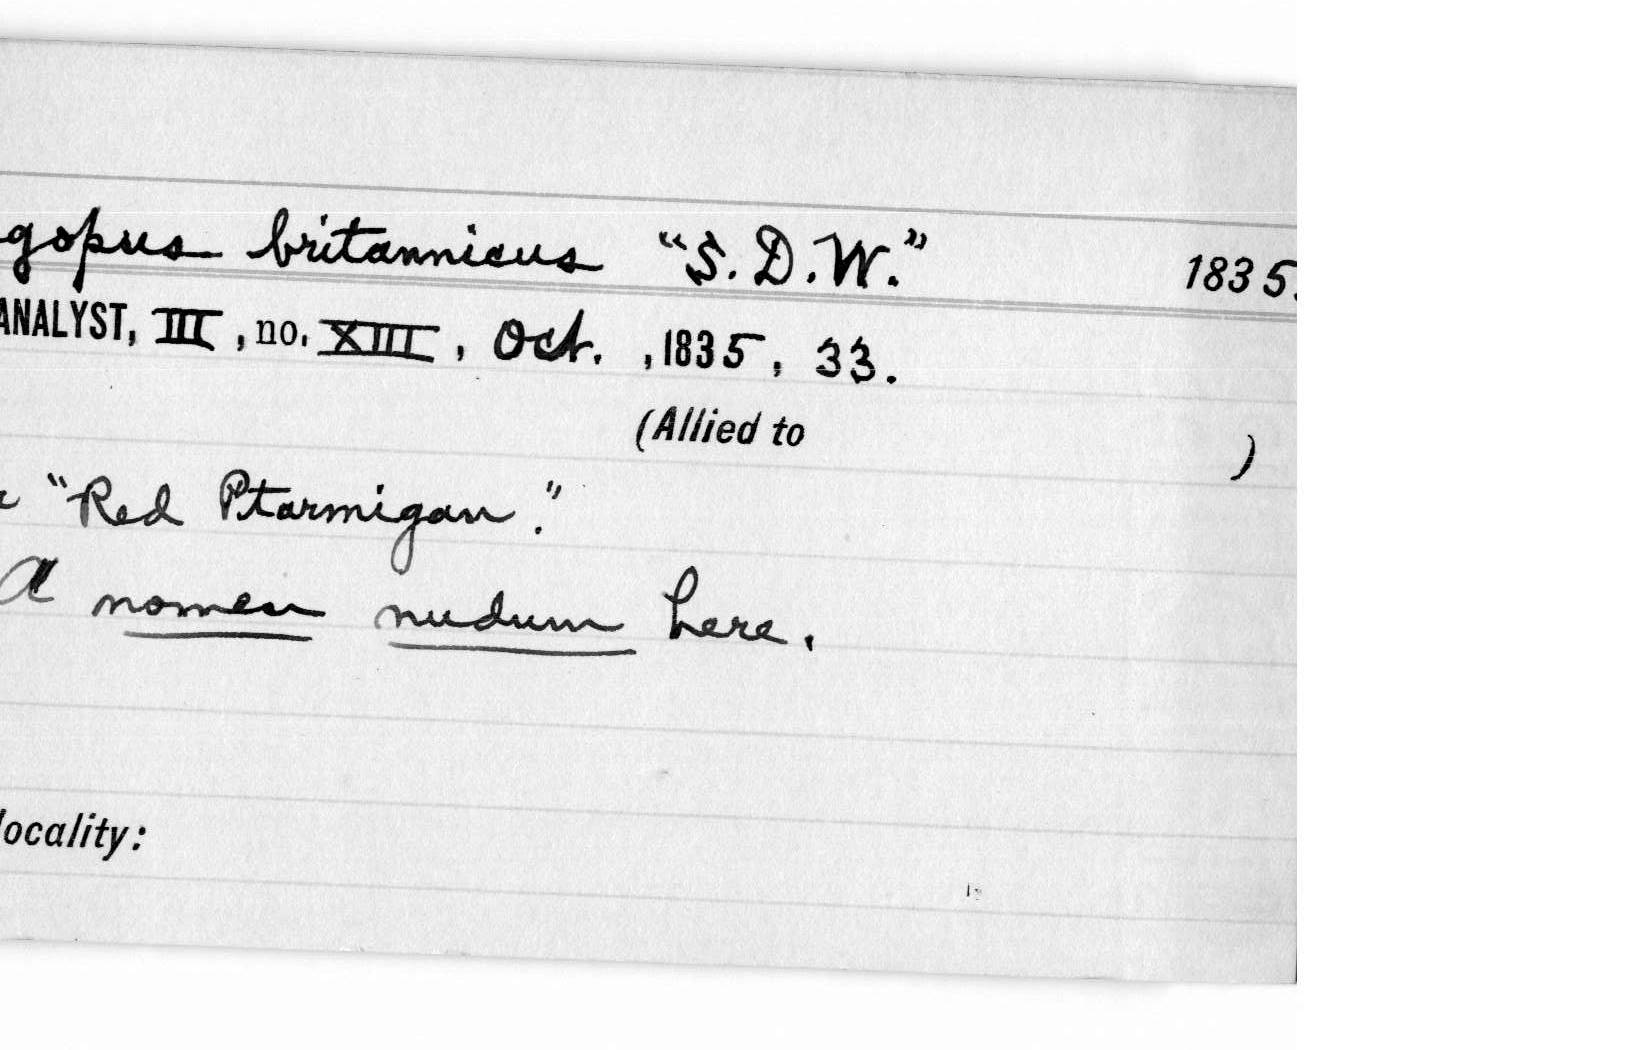 gopus britannicus "S.D.W." 1835.
ANALYST, III, no. XIII, Oct., 1835, 33.
(Allied to )
"Red Ptarmigan."
A nomen nudum here.
locality: